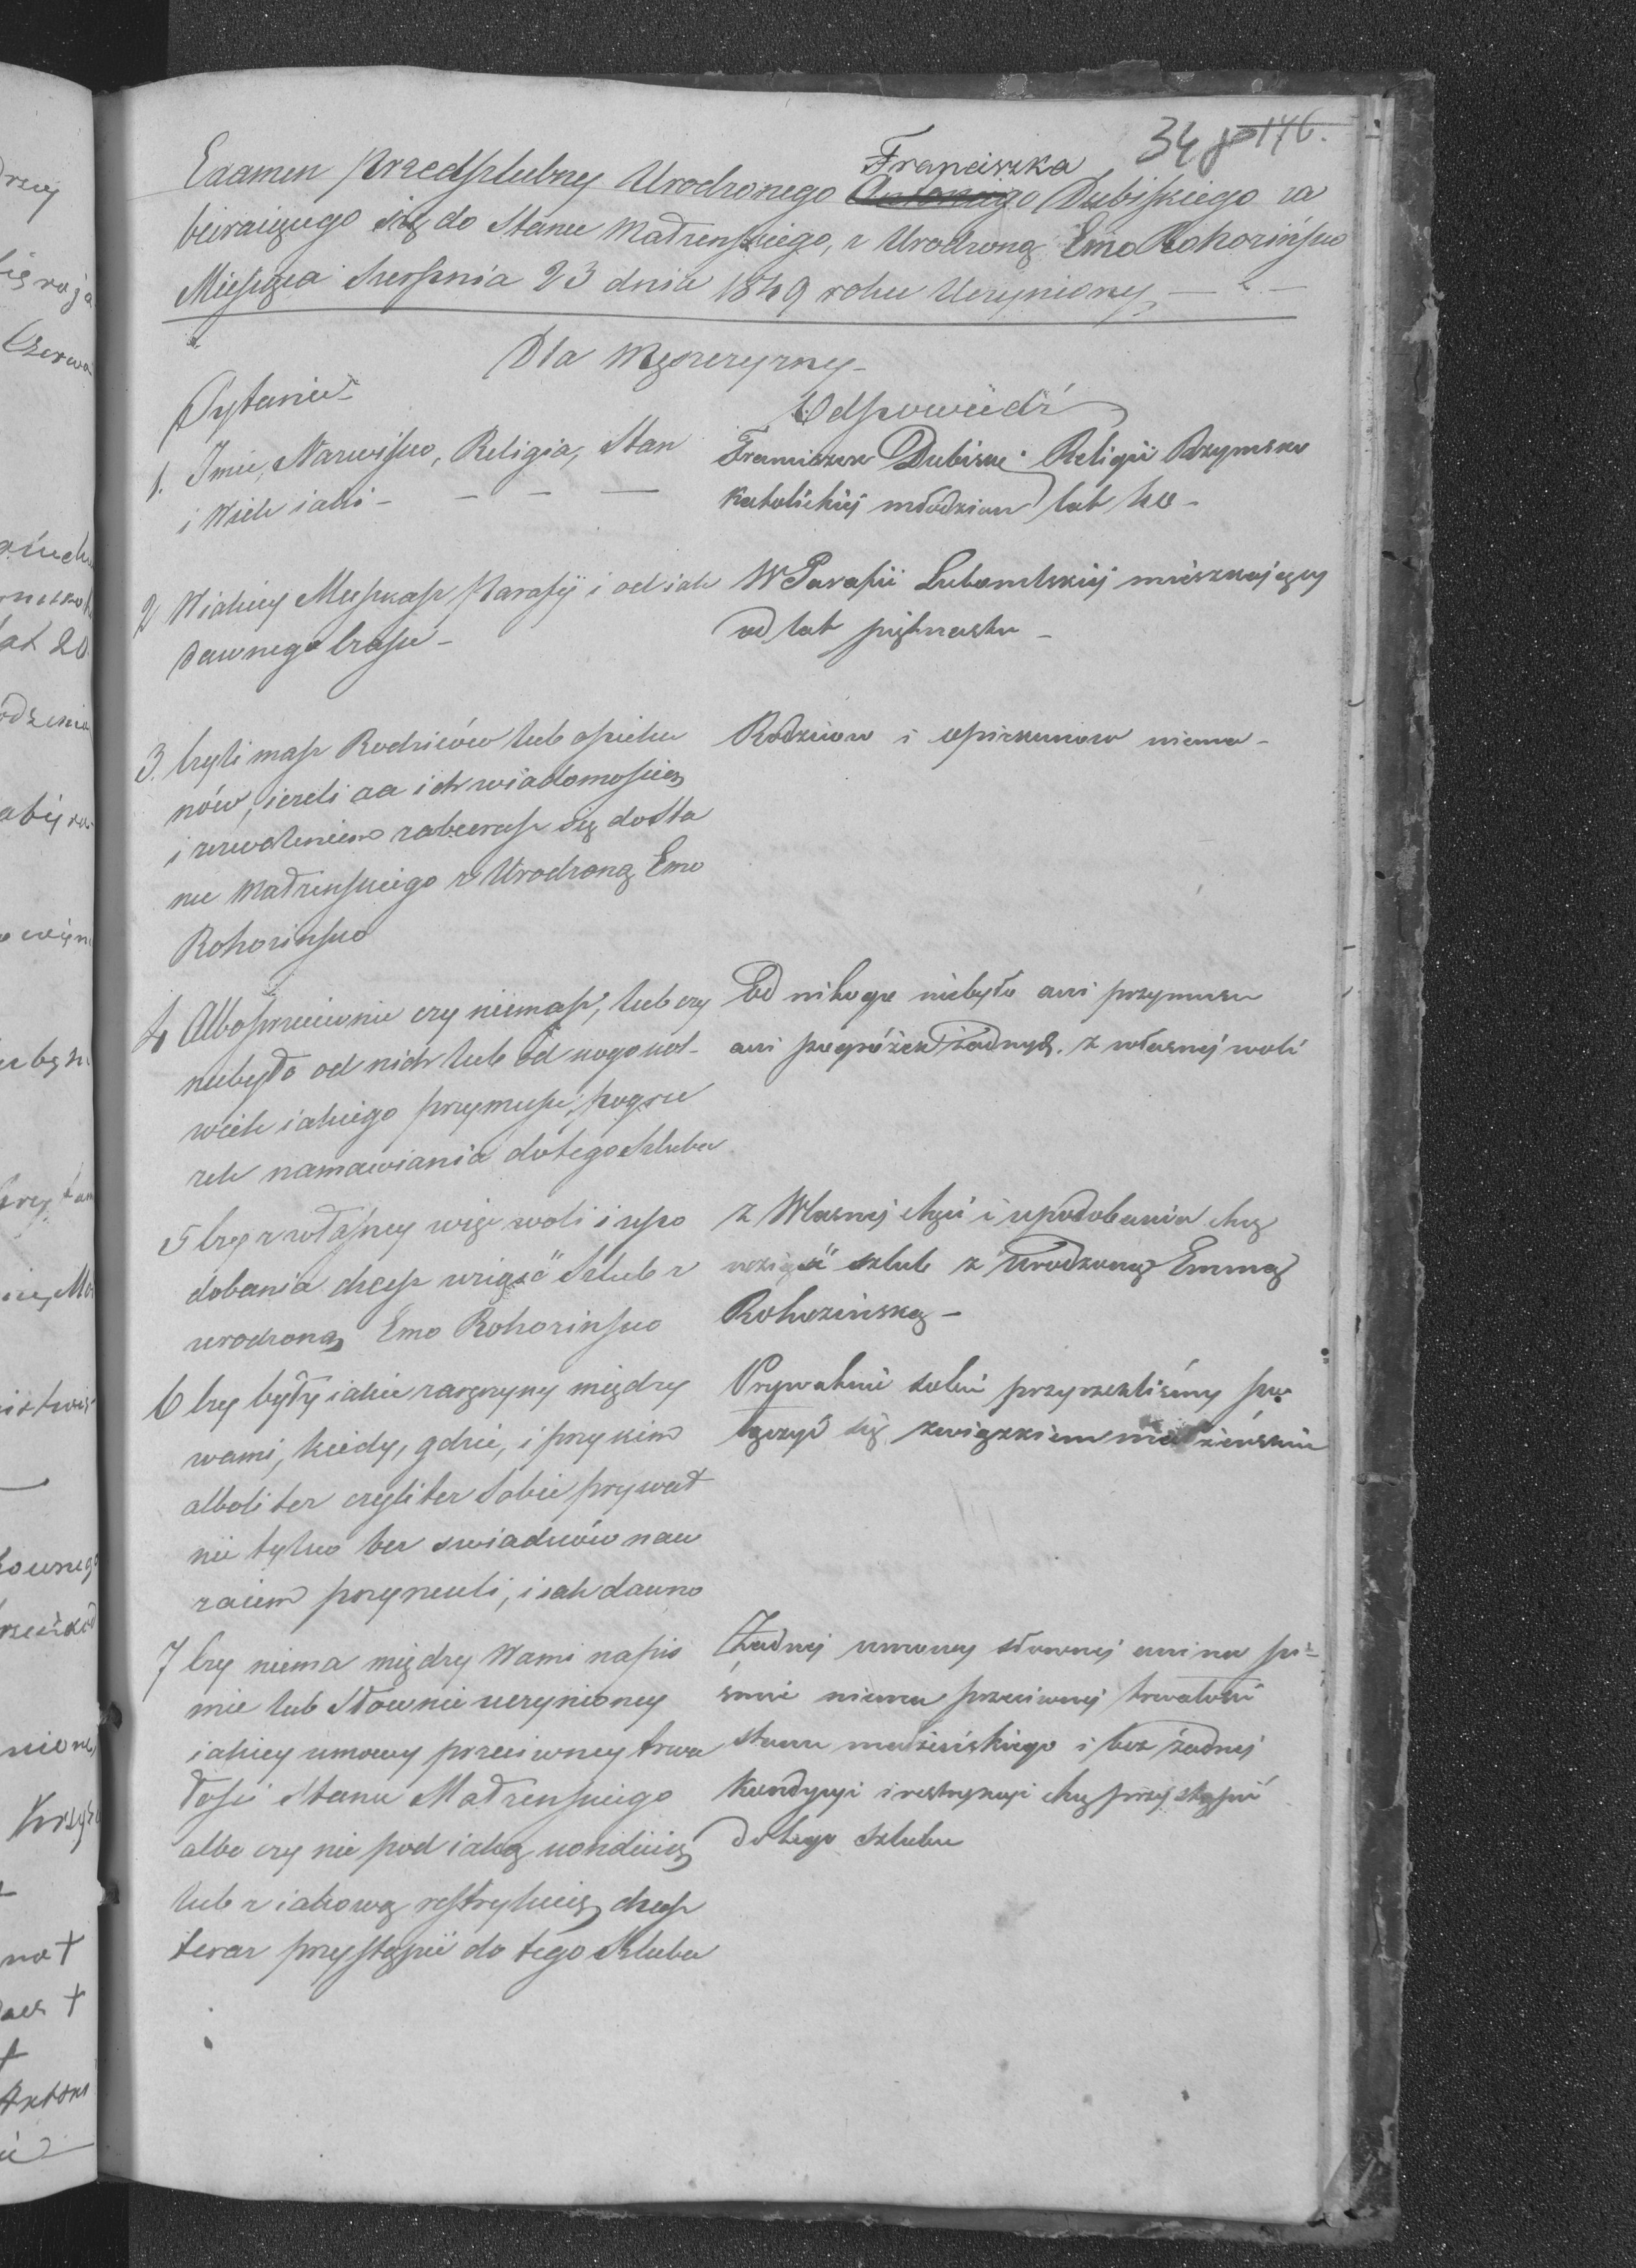 34 146.
Franciszka
Examen przedszlubny Urodzonego Antoniego Dubiskiego za
bieraiącego się do Stanu Małżenskiego, z Urodzoną Emo Rohozińsko
Miesiąca Sierpnia 23 dnia 1849 roku Uczyniony
Dla Męszczyzny
Pytanie
Odpowiedź
1. Imie, Nazwisko, Religia, Stan
i Wiele iatki
Franciszek Dubiski Religii Rzymsko
Katolickiej młodzian lat 40
2 W iakiey Mieszkasz Parafij i od iak
dawnego Czasu
W Parafii Lubomlskiej mieszkający
od lat piętnastu
3. Czyli masz Rodziców lub opieku
nów, ieżeli za ich wiadomością
i zezwoleniem zabierasz się do Sta
nu Małżenskiego z Urodzoną Emo
Rohozinsko
Rodziców i opiekunow niema
4 Albo przeciwnie czy niemasz, lub czy
niebyło od nich lub od kogokol-
wiek iakiego przymusu, pogru
zek namawiania do tego Szlubu
Od nikogo niebyło ani przymusu
ani pogróżek żadnych. z własnej woli
5 Czy z własney więc woli i upo
dobania chcesz wziąść Szlub z
urodzoną Emo Rohozinsko
Z Własnej chęci i upodobania chcę
wziąść szlub z Urodzoną Emmą
Rohozińską
6 Czy były iakie zaręczyny między
wami, kiedy, gdzie, i przy kim
alboli tez czyli tez Sobie prywat
nie tylko bez swiadków naw
zaiem przyrzeuli, i iak dawno
Prywatnie sobie przyrzekliśmy po
łączyć się związkiem małżeńskim
7 Czy niema między Wami na pis
mie lub Słownie uczynioney
iakiey umowy przeciwney trwa
łości Stanu Małżenskiego
albo czy nie pod iaką kondicią
lub z iakową restrykcią chcesz
teraz przystąpić do tego Szlubu
Żadnej umowy słownej ani na pi-
śmie niema przeciwnej trwałości
stanu małżeńskiego i bez żadnej
Kondycyi i restrykcyi chcę przystąpić
do tego Szlubu